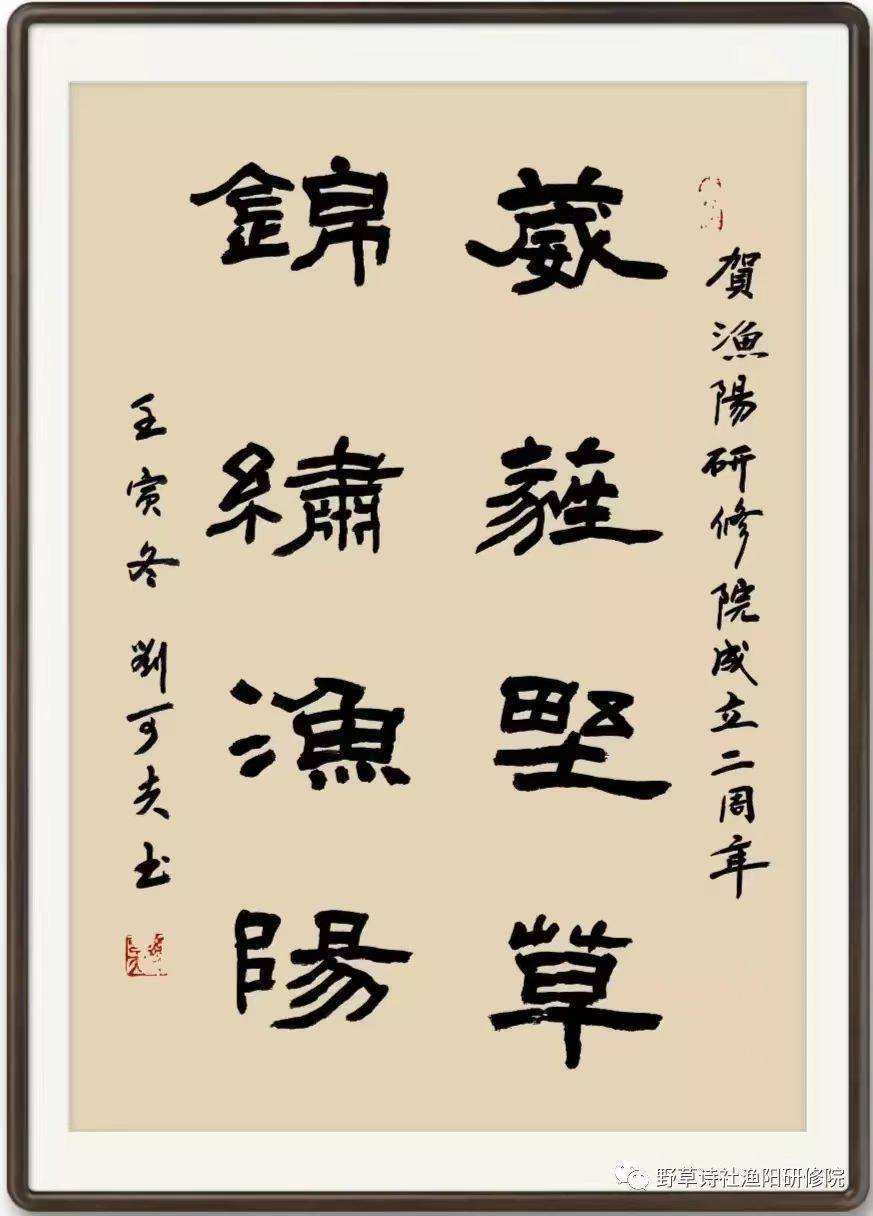 賀漁陽研修院成立二周年
葳蕤野草
錦繡漁陽
壬寅冬 劉可夫书
野草诗社渔阳研修院